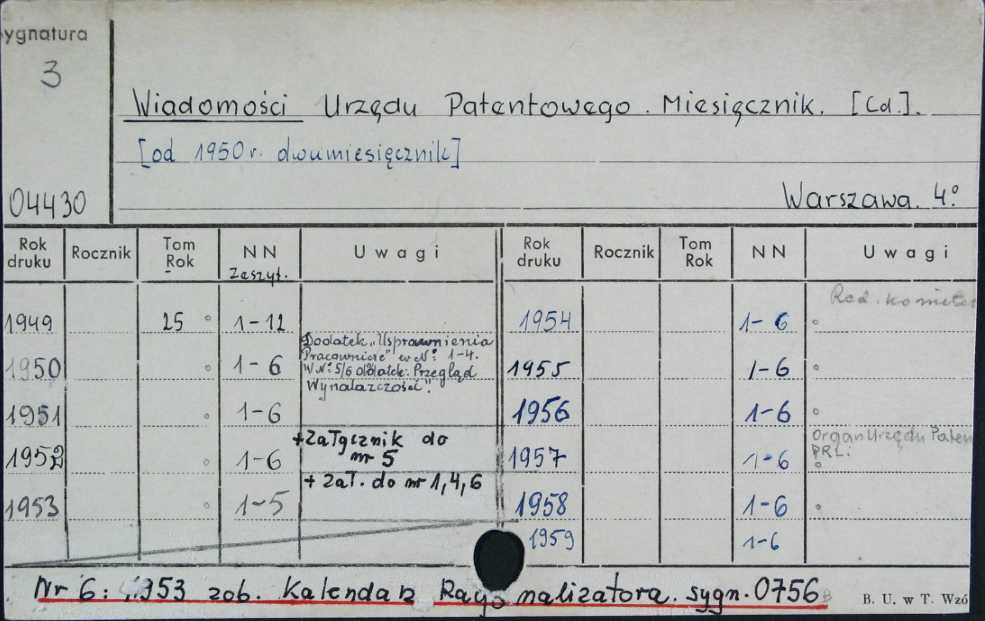 Sygnatura
3
04430
Wiadomości Urzędu Patentowego. Miesięcznik. [Cd.].
[od 1950 r. dwumiesięcznik]
Warszawa. 4º
Rok druku Rocznik Tom Rok NN Zeszyt. Uwagi Rok druku Rocznik Tom Rok NN Uwagi
1949 25 1-12
1950 1-6 Dodatek „Usprawnienia
Pracownicze" w Nº: 1-4.
W Nº 5/6 dodatek: Przegląd
Wynalazczości".
1951 1-6
1952 1-6 +Załącznik do
nr 5
1953 1-5 + Zał. do nr 1,4,6
1954 1-6 Red. komitet
1955 1-6
1956 1-6
1957 1-6 Organ Urzędu Paten
PRL.
1958 1-6
1959 1-6
Nr 6: 1953 zob. Kalendarz Racjonalizatora. sygn. 0756
B. U. w T. Wzó